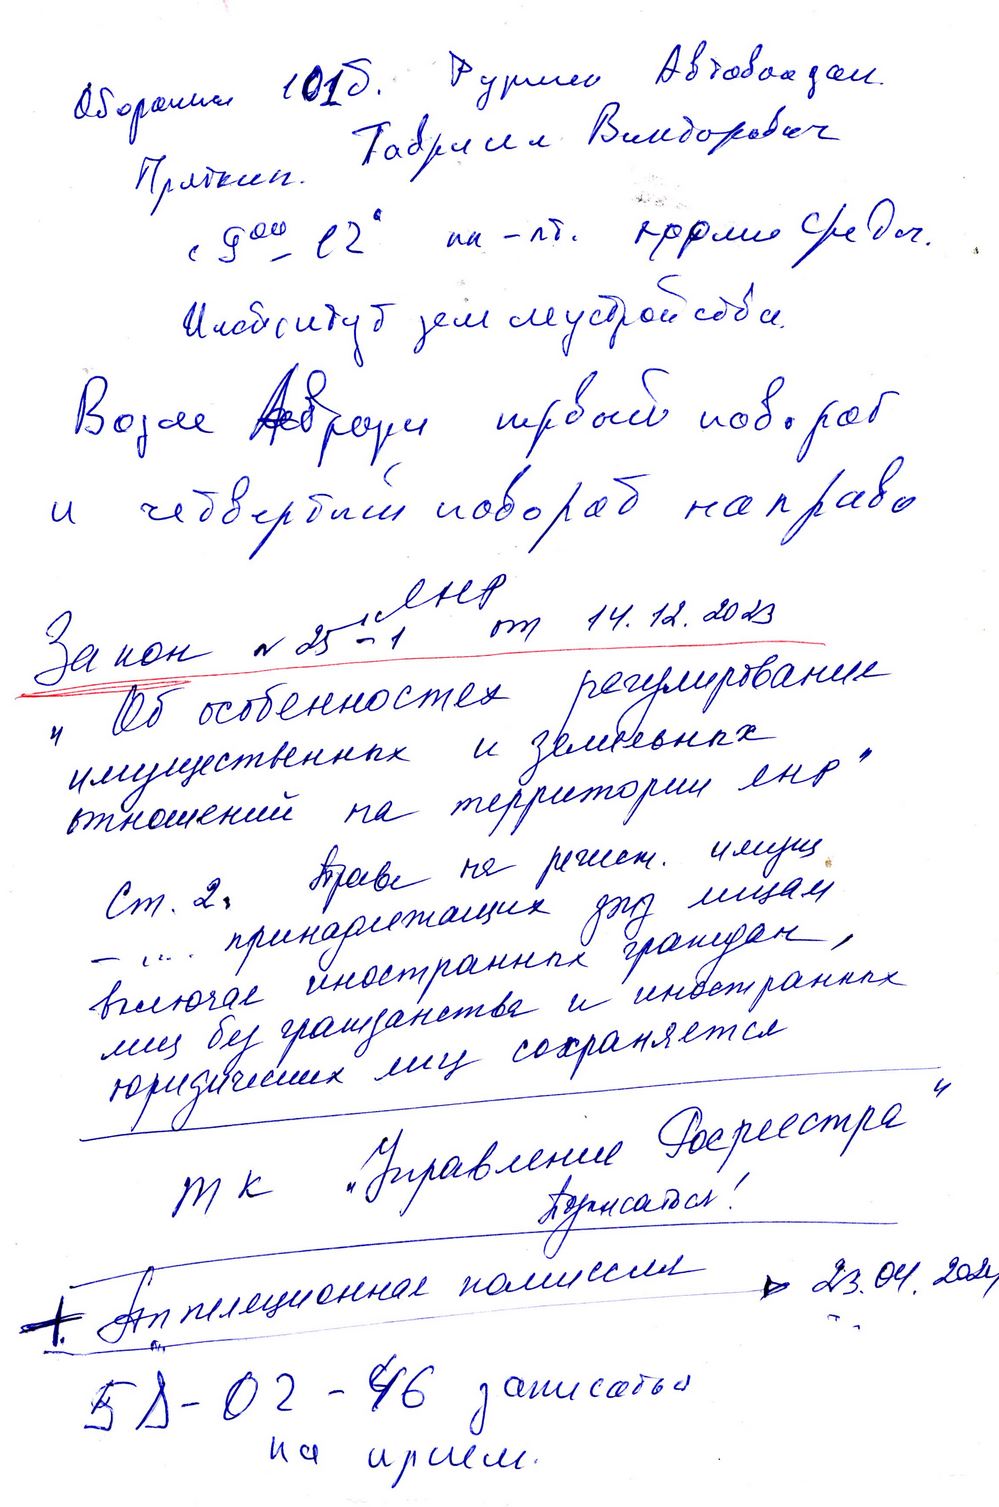 Оборонная 101б. Автовокзал.
Гавриил Викторович
Пряткин.
с 9⁰⁰ – 12⁰ пн – пт. кроме среды.
Институт землеустройства.
Возле Авроры первый поворот
и четвертый поворот направо
ЛНР
Закон № 25 – 1 от 14.12.2023
"Об особенностях регулирование
имущественных и земельных
отношений на территории ЛНР"
Ст. 2. Права на регист. имущ
– .... принадлежащих лицам
включая иностранных граждан,
лиц без гражданства и иностранных
юридических лиц сохраняется
ТК "Управление Росреестра"
Подписаться!
+ Аппеляционная комиссия 23.04.2024
58-02-46 записаться
на прием.